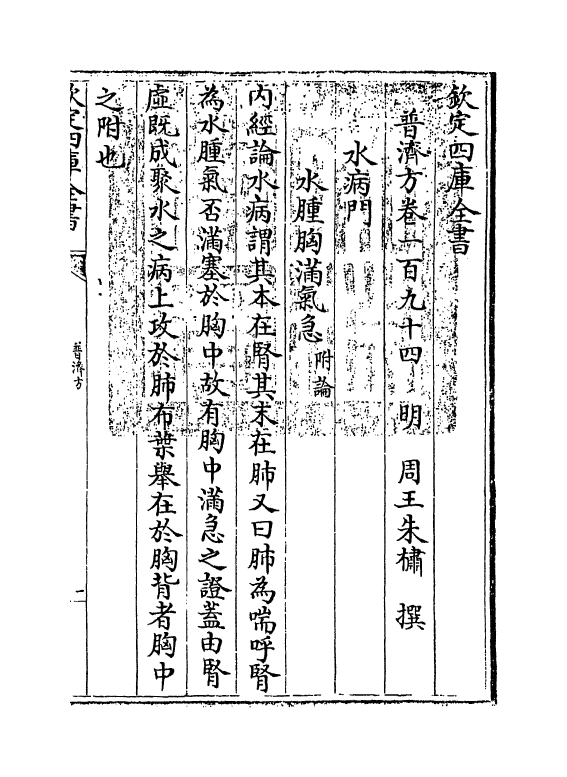 欽定四庫全書
普濟方卷一百九十四 明 周王朱橚 撰
水病門
水腫胸滿氣急附論
内經論水病謂其本在腎其末在肺又曰肺為喘呼腎
為水腫氣否滿塞於胸中故有胸中滿急之證蓋由腎
虛既成聚水之病上攻於肺布葉舉在於胸背者胸中
之附也
欽定四庫全書
普濟方